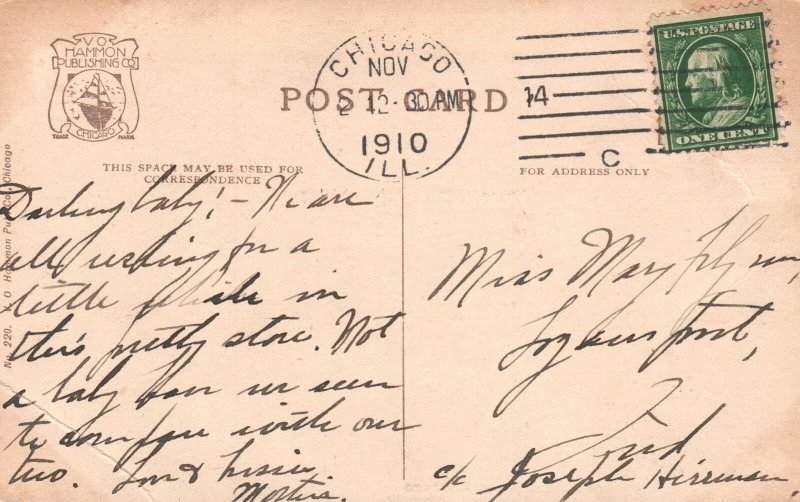 V.O.
HAMMON
PUBLISHING CO.
CHICAGO
TRADE MARK
CHICAGO
NOV
2 12-30AM
1910
ILL.
POST CARD
14
C
U.S. POSTAGE
ONE CENT
THIS SPACE MAY BE USED FOR
CORRESPONDENCE
FOR ADDRESS ONLY
No. 220. V. O. Hammon Pub. Co., Chicago
Darling baby! - We are
all resting for a
little while in
this pretty store. Not
a baby have we seen
to compare with our
two. Love & kisses
Miss Mary Flynn,
Logansport,
Ind
c/o Joseph Hirreman